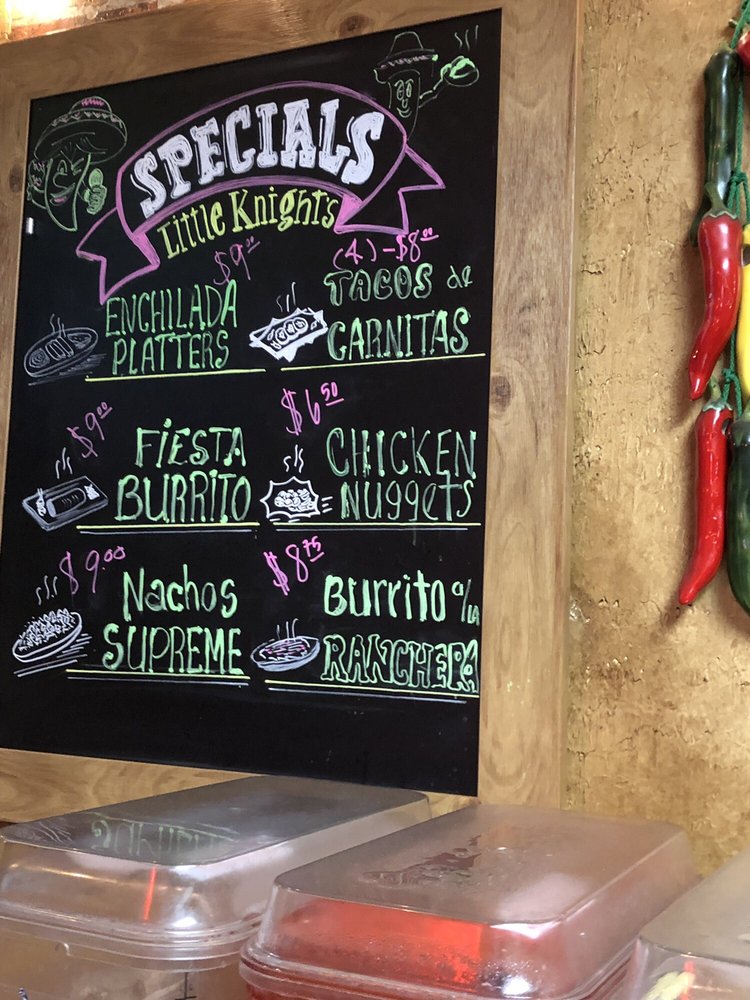 SPECIALS
Little Knights
$9.00
ENCHILADA
PLATTERS
(4)-$8.00
TACOS de
CARNITAS
$9.00
FIESTA
BURRITO
$6.50
CHICKEN
NuggEts
$9.00
Nachos
SUPREME
$8.75
Burrito a/LA
RANCHERA